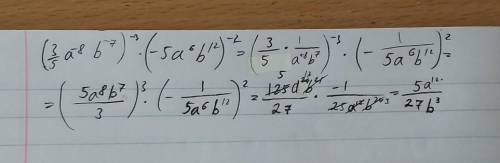 (3/5 a⁻⁸ b⁻⁷)⁻³ · (-5a⁶ b¹²)⁻² = (3/5 · 1/a⁸b⁷)⁻³ · (- 1/5a⁶b¹²)² =
= (5a⁸b⁷/3)³ · (- 1/5a⁶b¹²)² = 125a²⁴b²¹/27 · -1/25a¹²b²⁴ = 5a¹²/27b³